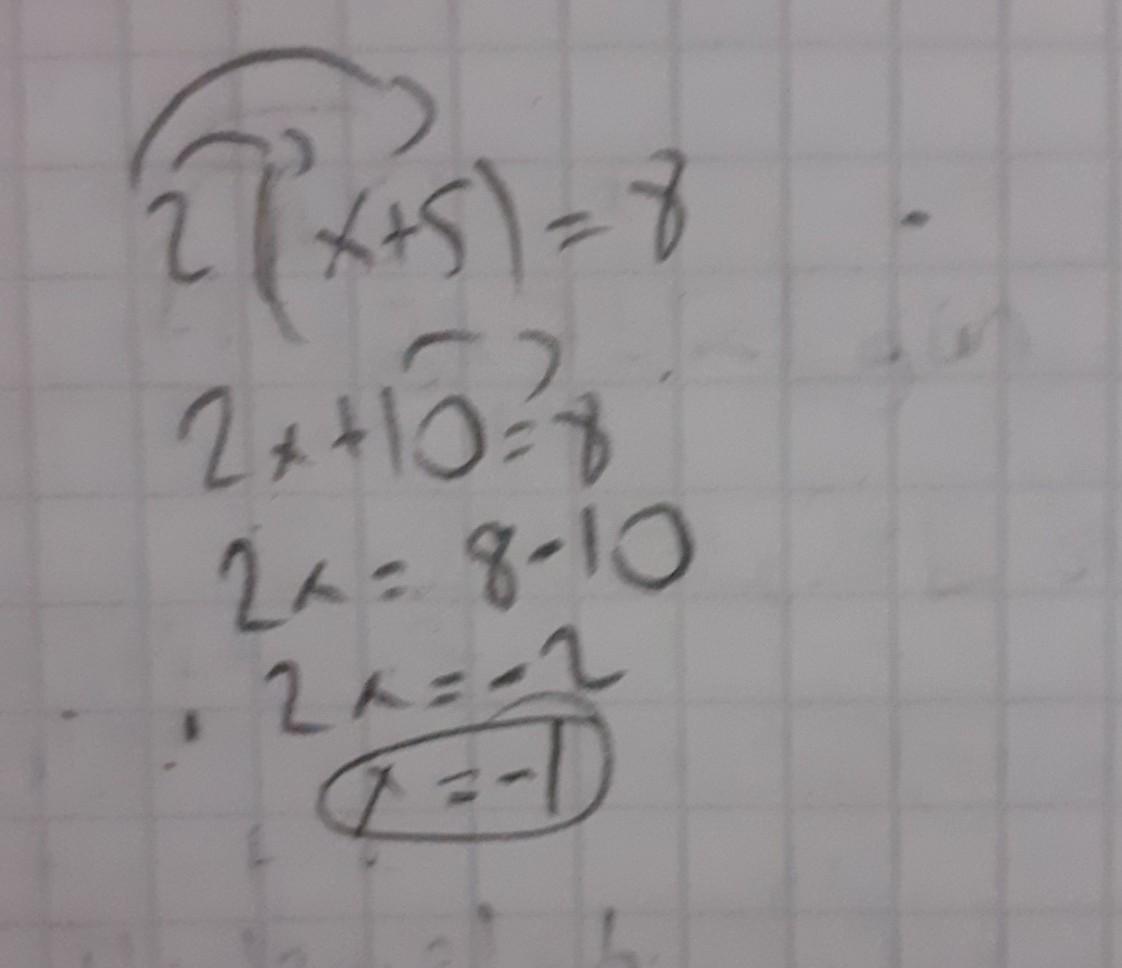 2(x+5)=8
2x+10=8
2x=8-10
2x=-2
x=-1